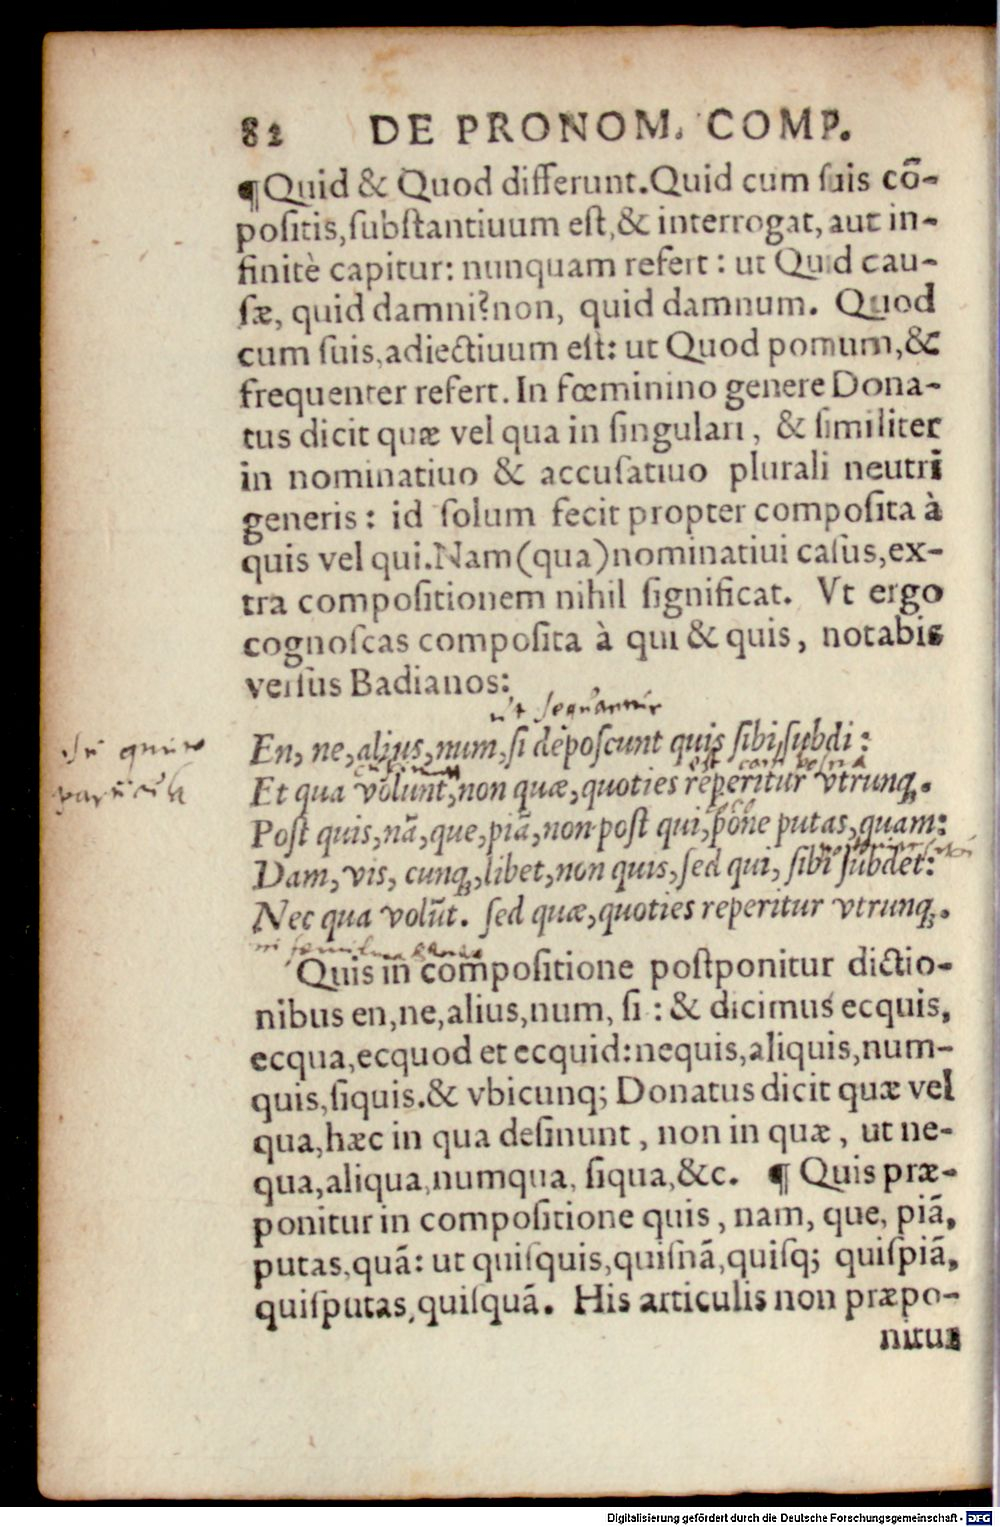 82 DE PRONOM. COMP.
¶Quid & Quod differunt.Quid cum ſuis cō-
poſitis,ſubſtantiuum eſt,& interrogat, aut in-
finitè capitur: nunquam refert: ut Quid cau-
ſæ, quid damni?non, quid damnum. Quod
cum ſuis,adiectiuum eſt: ut Quod pomum,&
frequenter refert. In fœminino genere Dona-
tus dicit quæ vel qua in ſingulari, & ſimiliter
in nominatiuo & accuſatiuo plurali neutri
generis: id ſolum fecit propter compoſita à
quis vel qui.Nam(qua)nominatiui caſus,ex-
tra compoſitionem nihil ſignificat. Vt ergo
cognoſcas compoſita à qui & quis, notabis
verſus Badianos:
ut sequantur
En, ne, alius, num, ſi depoſcunt quis ſibi ſubdi:
Et qua volunt, non quæ, quoties reperitur vtrunq;.
Poſt quis, nā, que, piā, non poſt qui, pone putas, quam:
Dam, vis, cunq;, libet, non quis, ſed qui, ſibi ſubdet:
Nec qua volūt. ſed quæ, quoties reperitur vtrunq;.
Quis in compoſitione poſtponitur dictio-
nibus en,ne,alius,num, ſi: & dicimus ecquis,
ecqua,ecquod et ecquid:nequis,aliquis,num-
quis,ſiquis.& vbicunq; Donatus dicit quæ vel
qua,hæc in qua deſinunt, non in quæ, ut ne-
qua,aliqua,numqua, ſiqua,&c. ¶ Quis præ-
ponitur in compoſitione quis, nam, que, piā,
putas,quā: ut quiſquis,quiſnā,quiſq; quiſpiā,
quiſputas,quiſquā. His articulis non præpo-
nitur
Digitalisierung gefördert durch die Deutsche Forschungsgemeinschaft - DFG